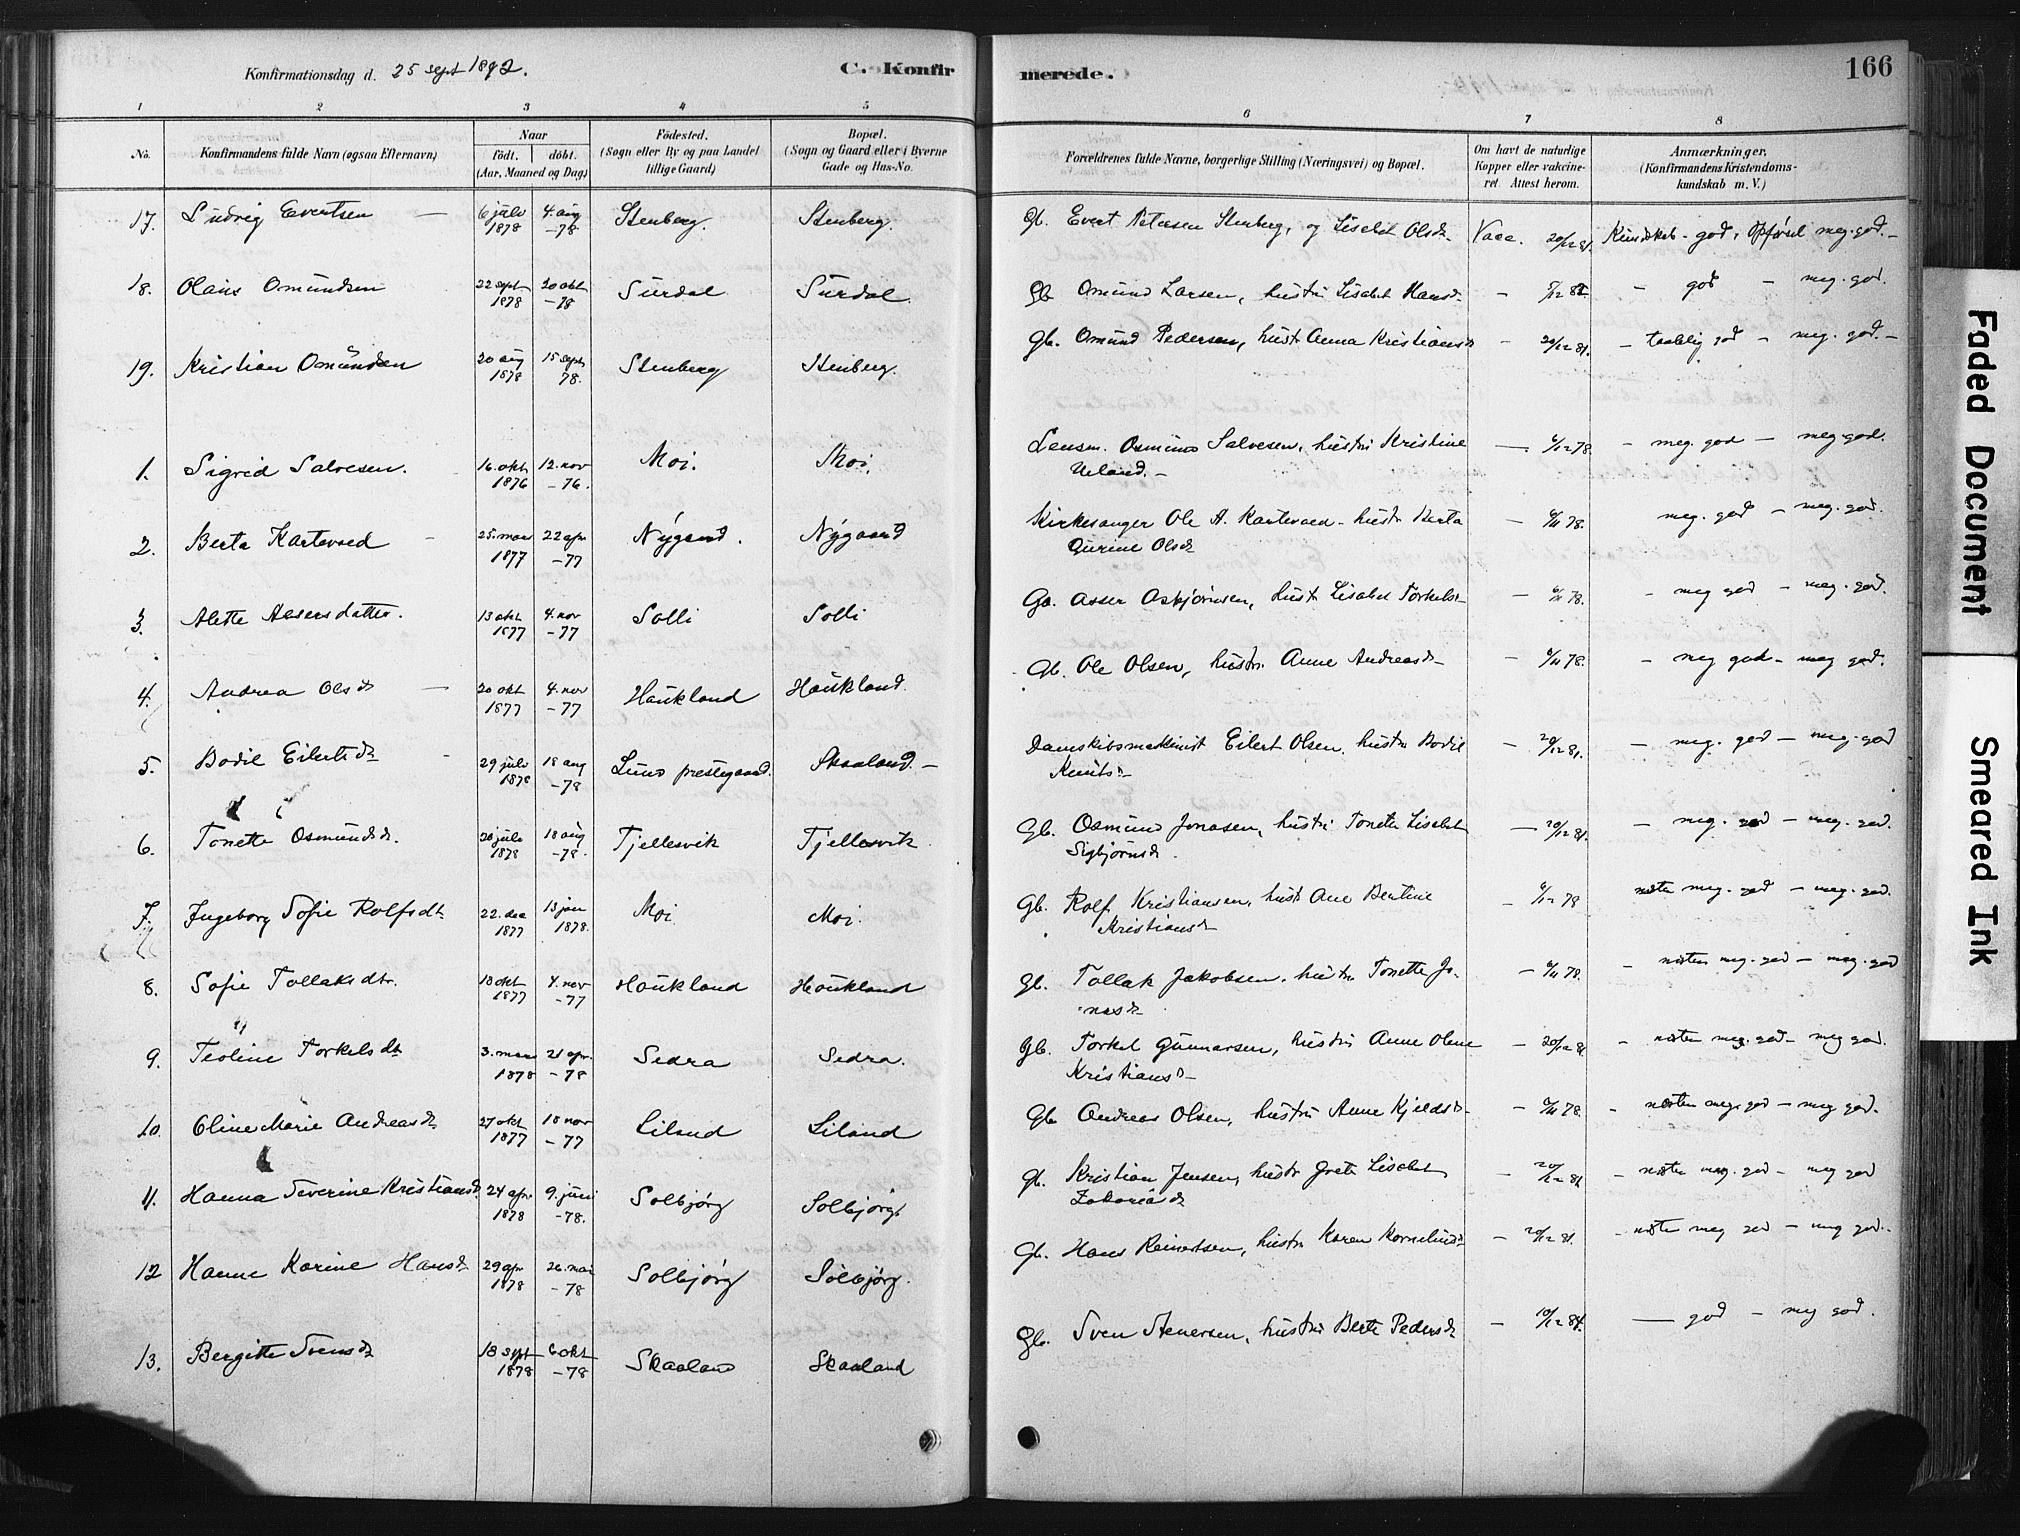 Konfirmationsdag d. 25 sept 1892.
C. Konfirmerede.
166
1 2 3 4 5 6 7 8
No.
Konfirmandens fulde Navn (ogsaa Efternavn)
Naar
født. døbt.
(Aar, Maaned og Dag)
Fødested.
(Sogn eller By og paa Landet
tillige Gaard)
Bopæl.
(Sogn og Gaard eller i Byerne
Gade og Hus-No.
Forældrenes fulde Navne, borgerlige Stilling (Næringsvei) og Bopæl.
Om havt de naturlige
Kopper eller vakcine-
ret. Attest herom.
Anmærkninger,
(Konfirmandens Kristendoms-
kundskab m. V.)
17. Ludvig Evertsen 6 juli 1878 4. aug -78 Stenberg. Stenberg. Gb. Evert Petersen Stenberg, og Lisabet Olsdr. Vacc. 20/12 81. Kundskab - god, Opførsel meg. god. -
18. Olaus Omundsen 22 sept 1878 20 okt -78 Surdal Surdal. Gb. Omund Larsen, hustru Lisabet Hansdr. - god - meg. god.
19. Kristian Omundsen 20 aug 1878 15 sept 78. Stenberg Stenberg. Gb. Omund Pedersen, hustr Anna Kristiansdr - 20/12 81. - taalelig god - meg. god. -
1. Sigrid Salvesen. 16. okt 1876 12. nov -76. Moi. Moi. Lensm. Osmund Salvesen, hustru Kristine
Ueland. - 6/12 78. - meg. god - meg. god.
2. Berta Kartevoed 25. mars 1877 22 apr -77 Nygaard. Nygaard Kirkesanger Ole A. Kartevoed - hustr Berta
Gurine Olsdr - 6/11 78. meg. god - meg. god.
3. Alette Assersdatter. 13 okt 1877 4. nov -77 Solli Solli Gb. Asser Asbjørnsen, hustr Lisabet Torkelsdr - 6/11 78. - meg god - meg. god.
4. Andrea Olsdr 20 okt 1877 4. nov -77 Haukland Haukland. Gb. Ole Olsen, hustru Anne Andreasdr - 6/11 78. - meg god - meg god.
5. Bodil Eilertsdr 29 juli 1878 18 aug -78 Lund prestegaard. Skaaland. - Damskibsmaskinist Eilert Olsen, hustru Bodil
Knutsdr - 20/12 81. - meg. god - meg. god
6. Tonette Osmundsdr. 20 juli 1878 18 aug -78. Tjellesvik Tjellesvik Gb. Osmund Jonasen, hustru Tonette Lisabet
Sigbjørnsdr. - 20/12 81. - meg. god - meg. god.
7. Ingeborg Sofie Rolfsdtr 22. dec 1877 13 jan 1878. Moi Moi. Gb. Rolf Kristiansen, hustr Ane Bertine
Kristiansdr - 6/12 78 næsten meg. god - meg. god.
8. Sofie Tollaksdtr. 13 okt 1877 4. nov -77 Haukland Haukland Gb. Tollak Jakobsen, hustru Tonette Jo-
nasdr - 6/11 78. - næsten meg. god - meg. god
9. Teoline Torkelsdtr 3. mars 1878 21 apr. -78 Sedra Sedra. Gb. Torkel Gunnarsen, hustru Anne Olene
Kristiansdr - 20/12 81 - næsten meg. god - meg god.
10. Oline Marie Andreasdr 27 okt 1877 18 nov -77 Liland Liland Gb. Andreas Olsen, hustru Anne Kjeldsdr - 6/11 78. - næsten meg. god - meg god.
11. Hanna Severine Kristiansdr 24 apr. 1878 9. juni -78. Solbjørg Solbjørg. Gb. Kristian Jensen, hustr Grete Lisabet
Zakariasdr - 20/12 81 - næsten meg. god - meg god
12 Hanne Karine Hansdr 29 apr 1878 26. mai -78 Solbjørg Solbjørg. Gb. Hans Reinertsen, hustru Karen Korneliusdr - 20/12 81. - næsten meg god - meg god. -
13. Bergitte Svensdr 18 sept 1878 6 okt -78 Skaaland Skaaland Gb. Sven Stenersen, hustru Berte Pedersdr - 10/12 84. - god - meg god.
Faded Document
Smeared Ink